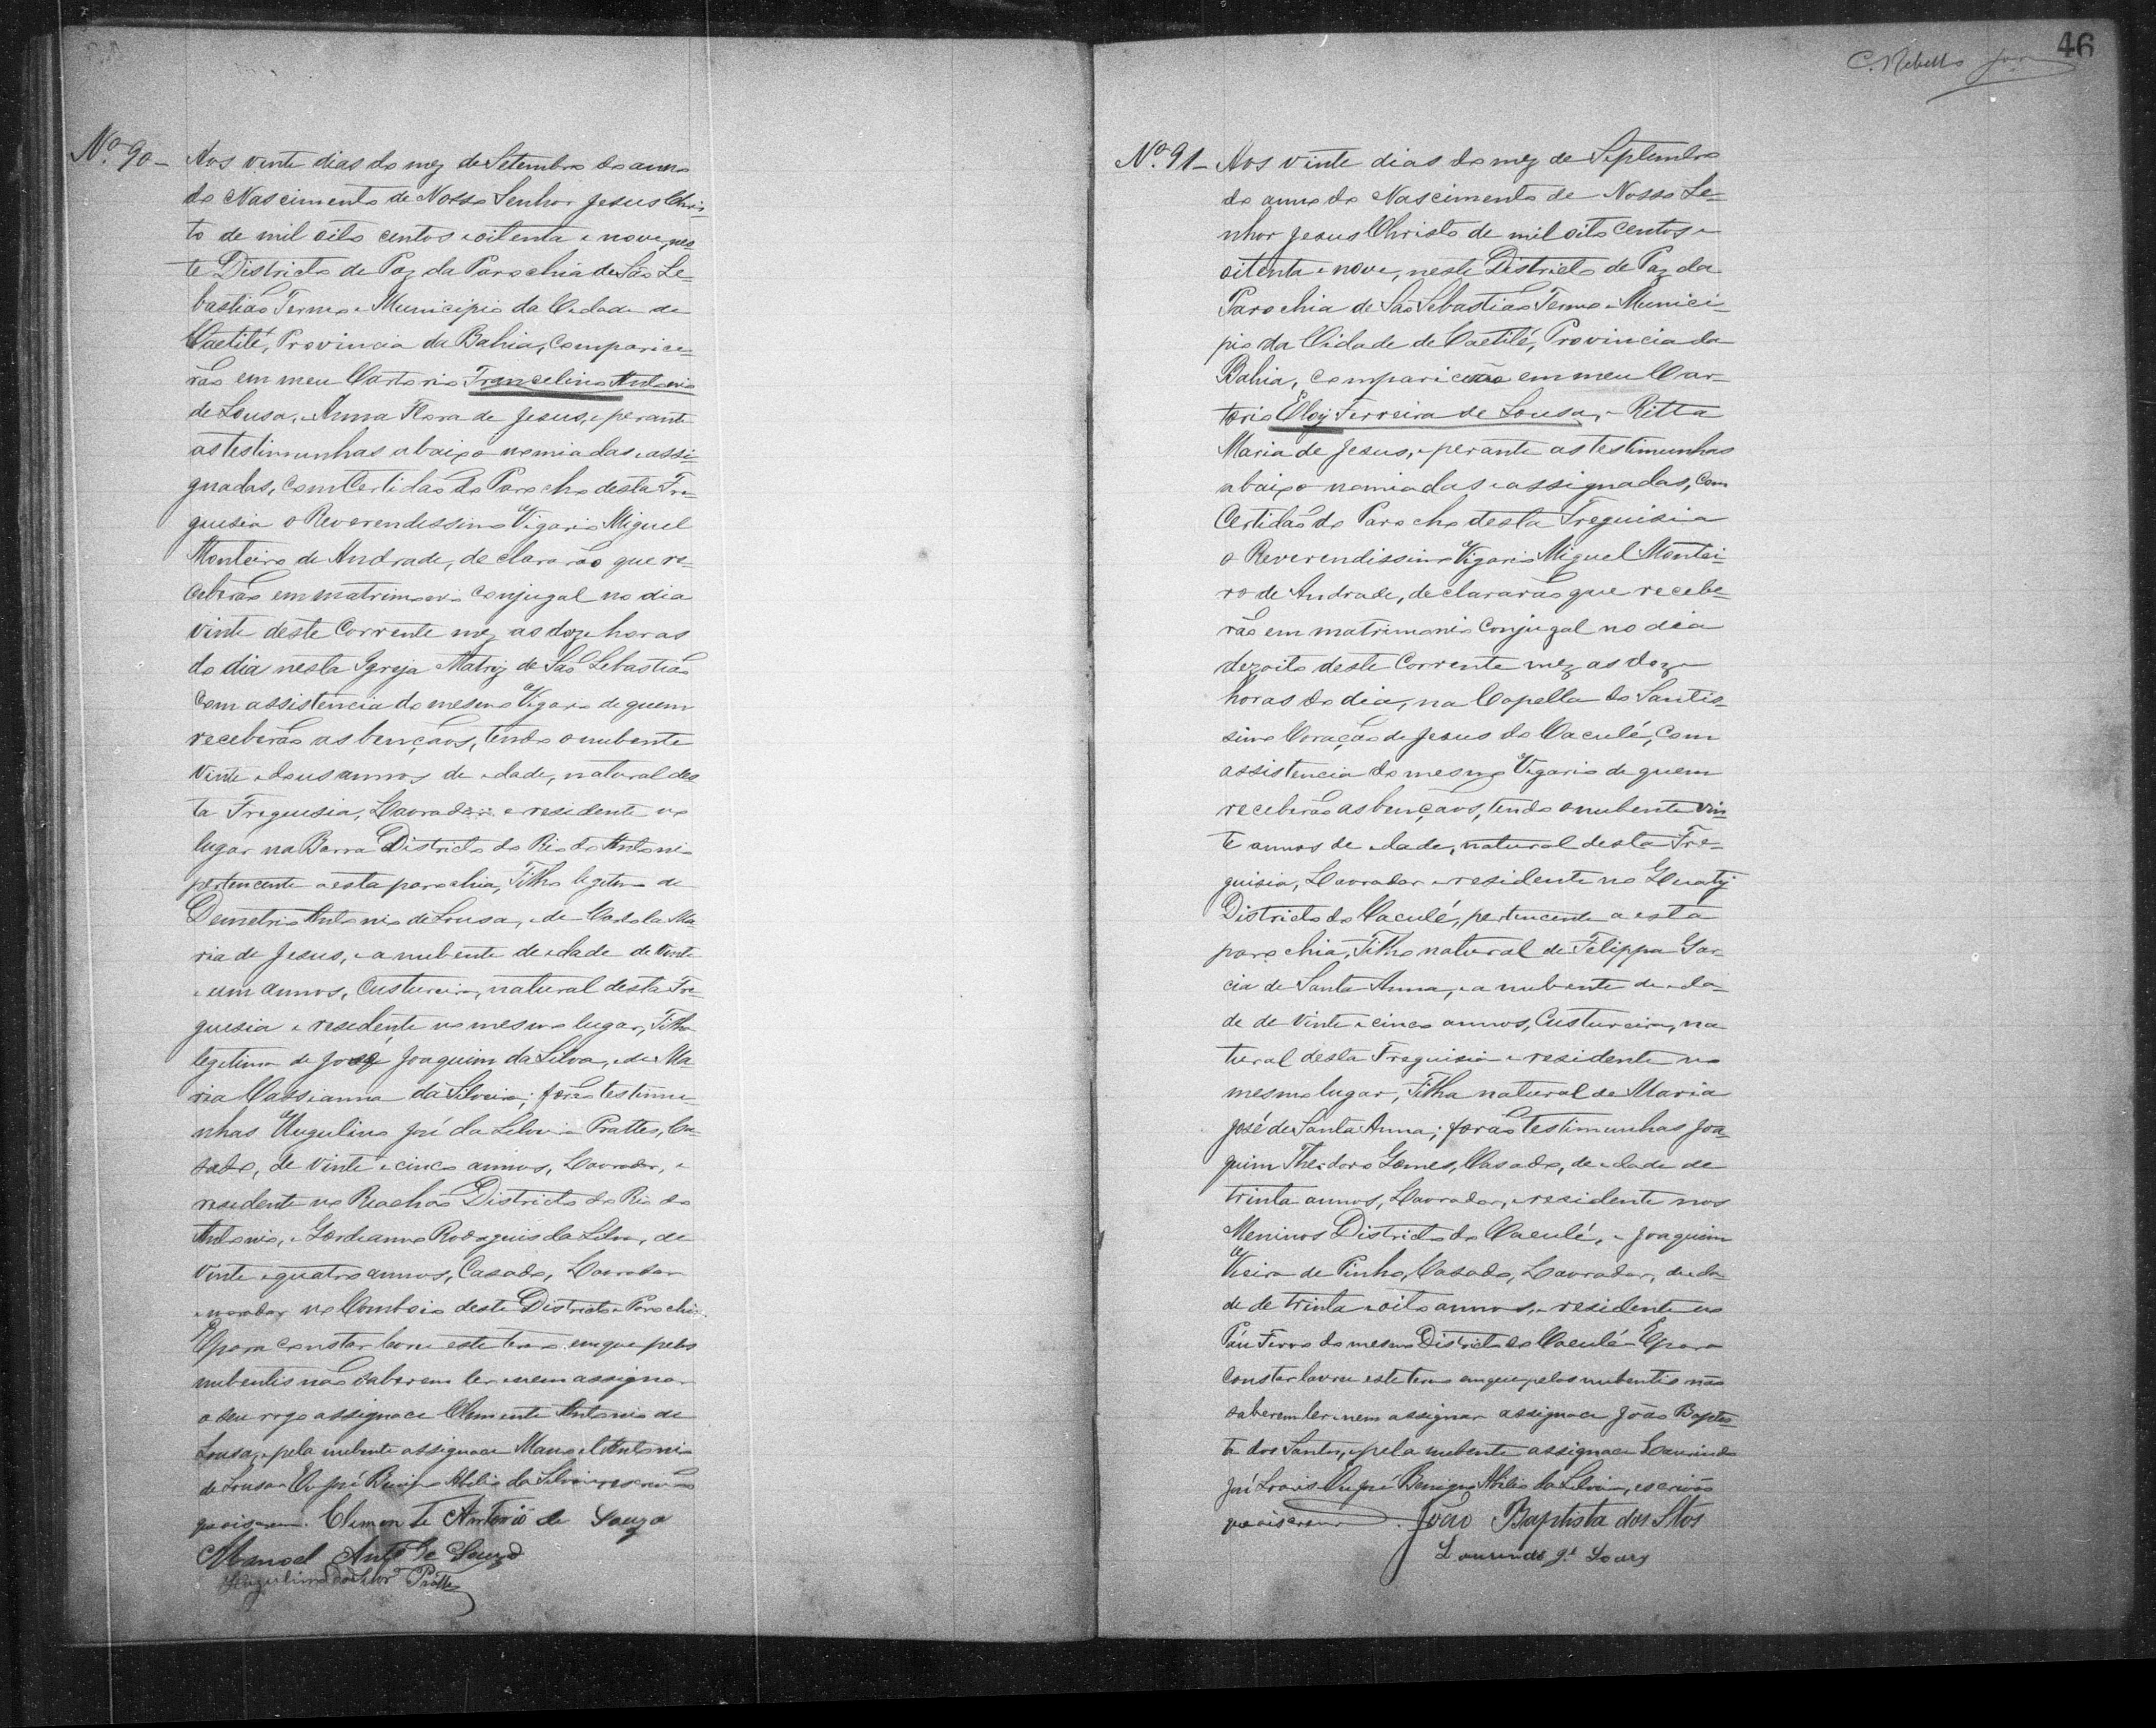 Nº 90 – Aos vinte dias do mez de Setembro do anno
do Nascimento de Nosso Senhor Jesus Chris-
to de mil oito centos e oitenta e nove, nes-
te Districto de Paz da Parochia de São Se-
bastião Termo e Municipio da Cidade de
Caetité, Provincia da Bahia, comparice-
rão em meu Cartorio Francelino Antonio
de Sousa, e Anna Flora de Jesus, e perante
as testimunhas abaixo nomiadas e assi-
gnadas, com Certidão do Parocho desta Fre-
guesia o Reverendissimo Vigario Miguel
Monteiro de Andrade, declararão que re-
ceberão em matrimonio conjugal no dia
vinte deste Corrente mez as doze horas
do dia nesta Igreja Matriz de São Sebastião
com assistencia do mesmo Vigario de quem
receberão as bençãos, tendo o nubente
vinte e dous annos de edade, natural des
ta Freguesia, Lavrador e residente no
lugar na Barra Districto do Rio do Antonio
pertencente a esta parochia, Filho legitimo de
Demetrio Antonio de Sousa, e de Ma-
ria de Jesus, e a nubente de edade de vinte
e um annos, Custureira, natural desta Fre-
guesia e residente no mesmo lugar, Filha
legitima de José Joaquim da Silva, e de Ma-
ria Cassianna da Silveira; forão testimu-
nhas Ungulino José da Silva Prattes, Ca-
sado, de vinte e cinco annos, Lavrador, e
residente no Riachão Districto do Rio do
Antonio, e Gordianno Rodrigues da Silva, de
vinte e quatro annos, Casado, Lavrador
e morador no Comboio deste Districto e Parochia.
E para constar lavrei este termo em que pelos
nubentis não saberem ler e nem assignar
a seu rogo assignace Clemente Antonio de
Sousa, e pela nubente assignace Manoel Antonio
de Sousa. Eu José Benigno Abilio da Silveira escrivão
que o iscrevi. Clemente Antonio de Souza
Manoel Antº de Souza
Ungulino José da Silvª Prattes
46
C. Rebello
Nº 91 – Aos vinte dias do mez de Septembro
do anno do Nascimento de Nosso Se-
nhor Jesus Christo de mil oito centos e
oitenta e nove, neste Districto de Paz da
Parochia de São Sebastião Termo e Munici-
pio da Cidade de Caetité, Provincia da
Bahia, comparicerão em meu Car-
torio Eloy Ferreira de Sousa, e Ritta
Maria de Jesus, e perante as testimunhas
abaixo nomiadas e assignadas, com
Certidão do Parocho desta Freguisia
o Reverendissimo Vigario Miguel Montei-
ro de Andrade, declararão que recebe-
rão em matrimonio conjugal no dia
dezoito deste Corrente mez as doze
horas do dia, na Capella do Santis-
simo Coração de Jesus do Caculé, com
assistencia do mesmo Vigario de quem
receberão as bençãos, tendo o nubente vin
te annos de edade, natural desta Fre-
guisia, Lavrador e residente no
Districto do Caculé, pertencente a esta
parochia, Filho natural de Felippa Gar
cia de Santa Anna, e a nubente de eda-
de de vinte e cinco annos, Custureira, na
tural desta Freguisia e residente no
mesmo lugar, Filha natural de Maria
José de Santa Anna; forão testimunhas Joa-
quim Theodoro Gomes, Casado, de edade de
trinta annos, Lavrador, e residente nos
Meninos Districto do Caculé, e Joaquim
Vieira de Pinho, Casado, Lavrador, de eda-
de de trinta e oito annos, e residente no
Páu Ferro do mesmo Districto do Caculé E para
constar lavrei este termo em que pelos nubentis não
saberem ler e nem assignar assignace João Baptis-
ta dos Santos, e pela nubente assignace Lourindo
José Eu José Benigno Abilio da Silveira, escrivão
que o iscrevi. João Baptista dos Stos